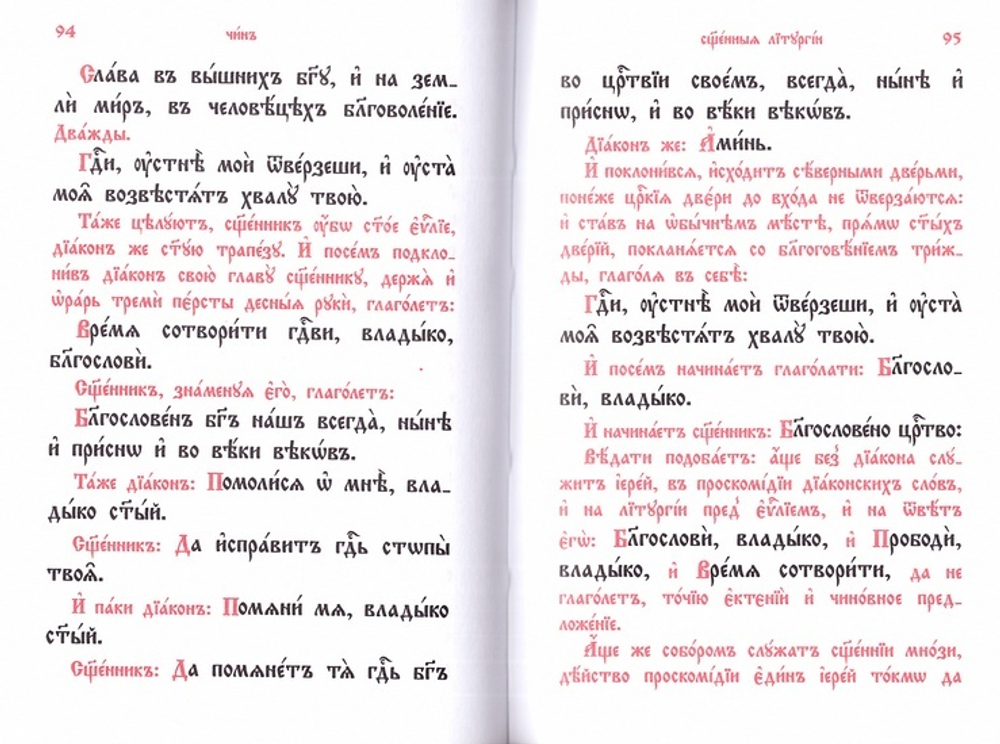 94
чи́нъ
Сла́ва въ вы́шнихъ бг҃ꙋ, и҆ на зем_
лѝ ми́ръ, въ человѣ́цѣхъ бл҃говоле́нїе.
Два́жды.
Гдⷭ҇и, ᲂу҆стнѣ̑ моѝ ѿве́рзеши, и҆ ᲂу҆ста̀
моѧ̑ возвѣстѧ́тъ хвалꙋ̀ твою̀.
Та́же цѣлꙋ́ютъ, сщ҃е́нникъ ᲂу҆́бѡ ст҃о́е є҆ѵⷢ҇лїе,
дїа́конъ же ст҃ꙋ́ю трапе́зꙋ. И҆ посе́мъ подкло_
ни́въ дїа́конъ свою̀ главꙋ̀ сщ҃е́нникꙋ, держѧ̀ и҆
ѡ҆ра́рь тремѝ пе́рсты десны́ѧ рꙋкѝ, глаго́летъ:
Вре́мѧ сотвори́ти гдⷭ҇ви, влады́ко,
бл҃гословѝ.
Сщ҃е́нникъ, зна́менꙋѧ є҆го̀, глаго́летъ:
Бл҃гослове́нъ бг҃ъ на́шъ всегда̀, ны́нѣ
и҆ при́снѡ и҆ во вѣ́ки вѣкѡ́въ.
Та́же дїа́конъ: Помоли́сѧ ѡ҆ мнѣ̀, вла_
ды́ко ст҃ы́й.
Сщ҃е́нникъ: Да и҆спра́витъ гдⷭ҇ь стѡпы̀
твоѧ̑.
И҆ па́ки дїа́конъ: Помѧнѝ мѧ, влады́ко
ст҃ы́й.
Сщ҃е́нникъ: Да помѧне́тъ тѧ̀ гдⷭ҇ь бг҃ъ
сщ҃е́нныѧ лїтꙋргі́и
95
во црⷭ҇твїи свое́мъ, всегда̀, ны́нѣ и҆
при́снѡ, и҆ во вѣ́ки вѣкѡ́въ.
Дїа́конъ же: А҆ми́нь.
И҆ поклони́всѧ, и҆схо́дитъ сѣ́верными две́рьми,
поне́же цр҃кїѧ две́ри до вхо́да не ѿверза́ютсѧ:
и҆ ста́въ на ѡ҆бы́чнѣмъ мѣ́стѣ, прѧ́мѡ ст҃ы́хъ
двері́й, покланѧ́етсѧ со бл҃гоговѣ́нїемъ три́ж_
ды, глаго́лѧ въ себѣ̀:
Гдⷭ҇и, ᲂу҆стнѣ̑ моѝ ѿве́рзеши, и҆ ᲂу҆ста̀
моѧ̑ возвѣстѧ́тъ хвалꙋ̀ твою̀.
И҆ посе́мъ начина́етъ глаго́лати: Бл҃госло_
вѝ, влады́ко.
И҆ начина́етъ сщ҃е́нникъ: Бл҃гослове́но црⷭ҇тво:
Вѣ́дати подоба́етъ: а҆́ще без̾ дїа́кона слꙋ́_
житъ і҆ере́й, въ проскомі́дїи дїа́конскихъ сло́въ,
и҆ на лїтꙋргі́и пред̾ є҆ѵⷢ҇лїемъ, и҆ на ѿвѣ́тъ
є҆гѡ̀: Бл҃гословѝ, влады́ко, и҆ Прободѝ,
влады́ко, и҆ Вре́мѧ сотвори́ти, да не
глаго́летъ, то́чїю є҆ктенїѝ и҆ чино́вное пред_
ложе́нїе.
А҆́ще же собо́ромъ слꙋ́жатъ сщ҃е́нніи мно́зи,
дѣ́йство проскомі́дїи є҆ди́нъ і҆ере́й то́кмѡ да